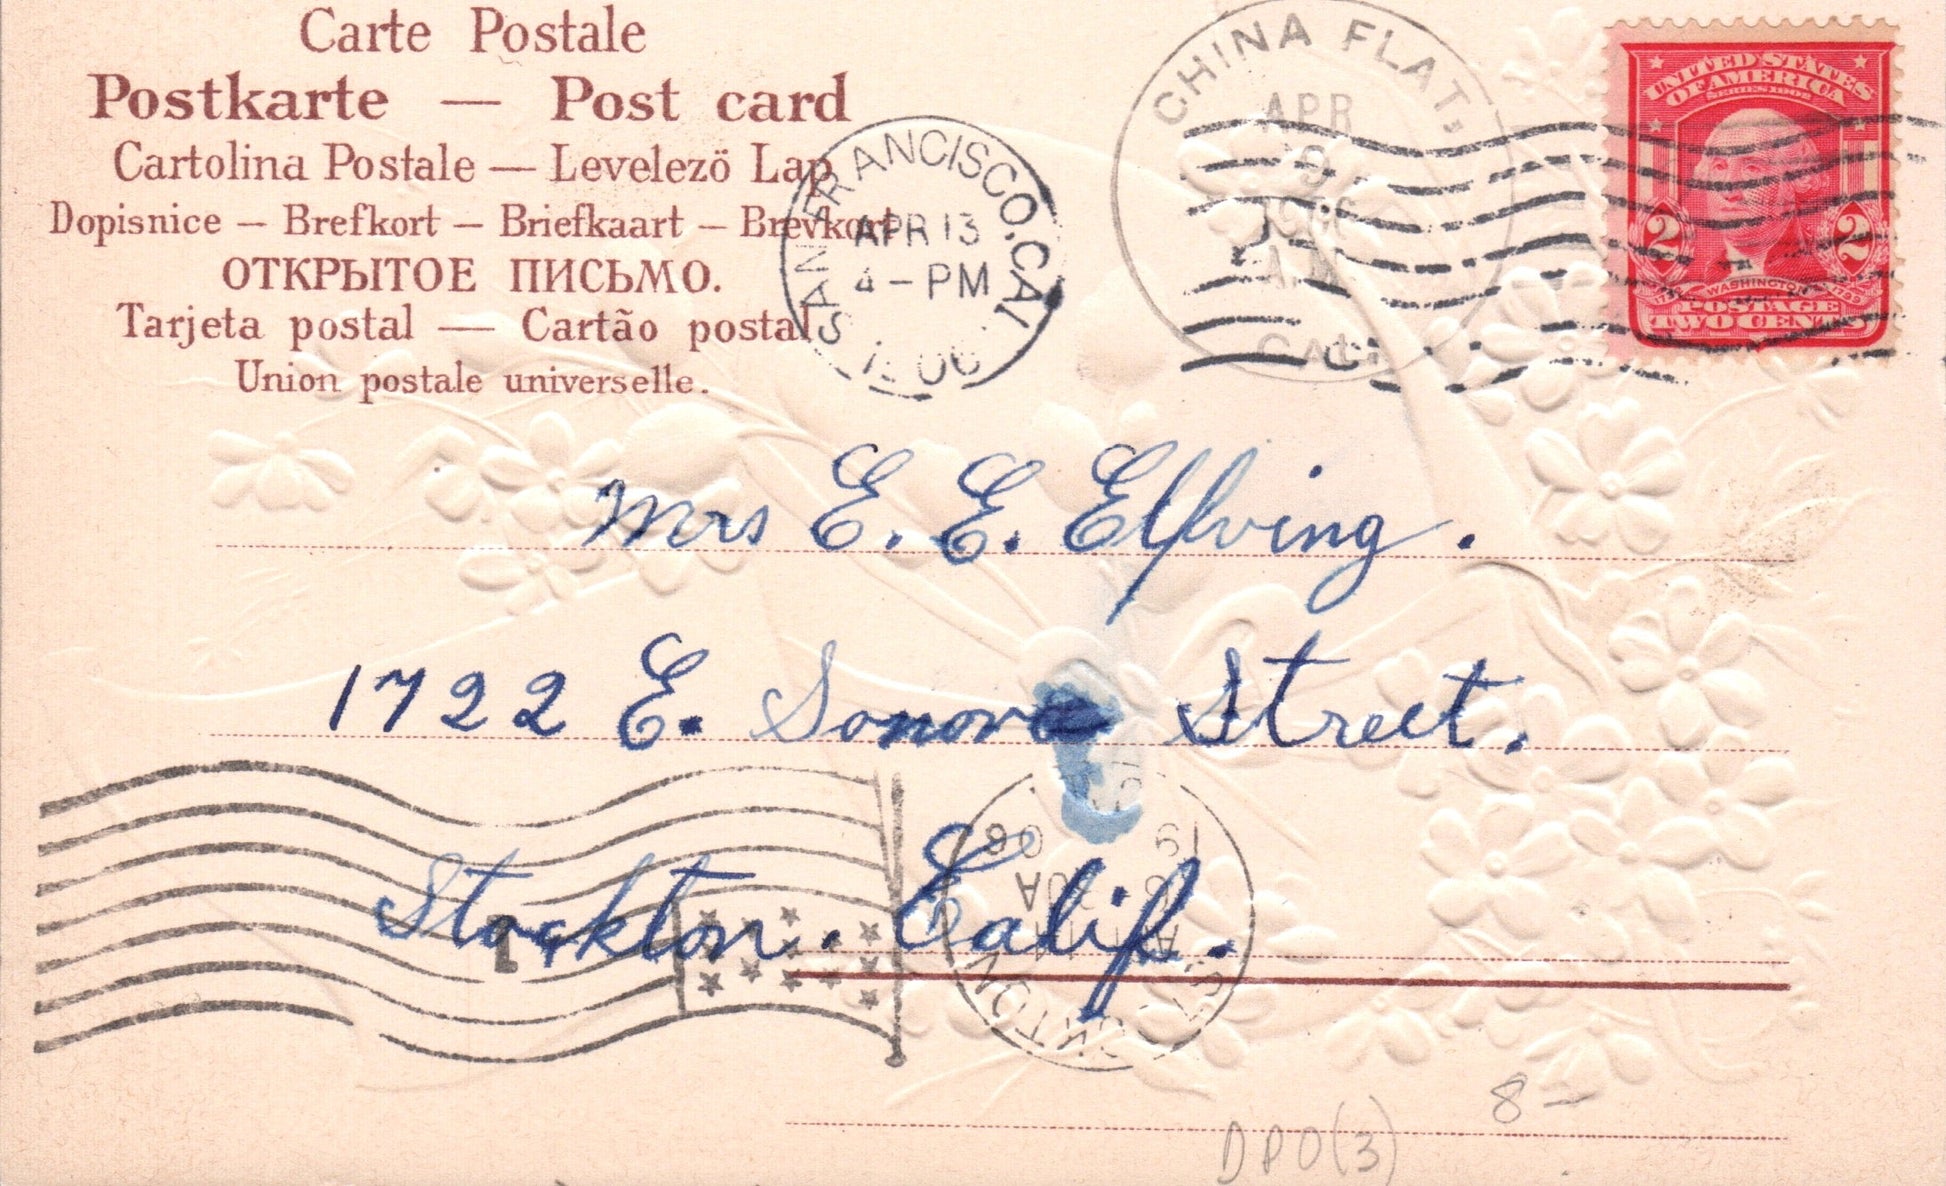 Carte Postale
Postkarte — Post card
Cartolina Postale — Levelezö Lap
Dopisnice — Brefkort — Briefkaart — Brevkort
ОТКРЫТОЕ ПИСЬМО.
Tarjeta postal — Cartão postal
Union postale universelle.
SAN FRANCISCO. CAL
APR 13
4 - PM
1906
CHINA FLAT,
APR
9
1906
CAL.
UNITED STATES
OF AMERICA
SERIES 1902
2 2
WASHINGTON
POSTAGE
TWO CENTS
Mrs E. E. Elfving.
1722 E. Sonora Street.
Stockton. Calif.
1
STOCKTON
19 06
8 —
DPO(3)